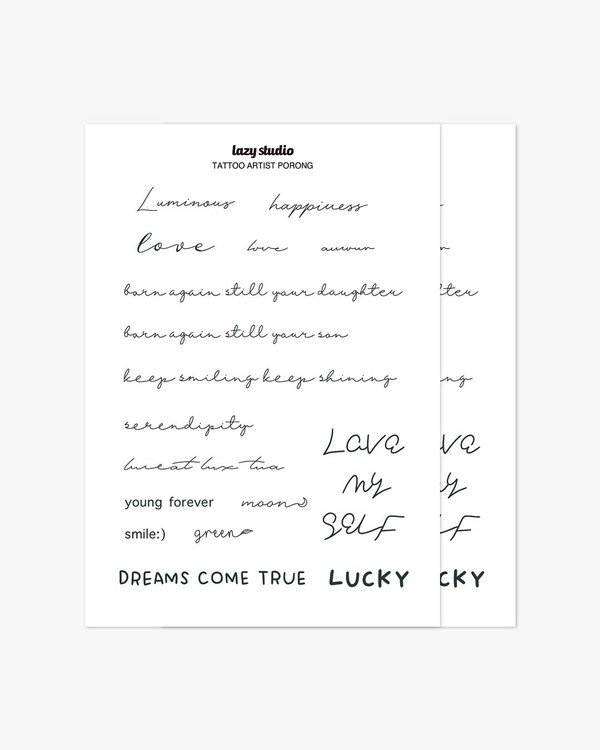 lazy studio
TATTOO ARTIST PORONG
Luminous happiness
love love
born again still your daughter
born again still your son
keep smiling keep shining
serendipity
luceat lux tua
young forever moon
smile:) green
LOVE
MY
SELF
DREAMS COME TRUE LUCKY
tter
ng
VE
Y
LF
CKY